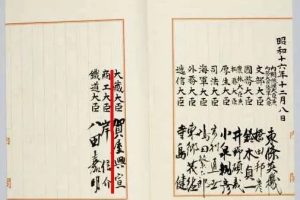 昭和十六年十二月八日
東條英機
文部大臣 橋田邦彦
國務大臣 鈴木貞一
農林大臣 井野碩哉
厚生大臣 小泉親彦
司法大臣 岩村通世
海軍大臣 嶋田繁太郎
外務大臣 東郷茂徳
遞信大臣 寺島健
大藏大臣 賀屋興宣
商工大臣 岸信介
鐵道大臣 八田嘉明